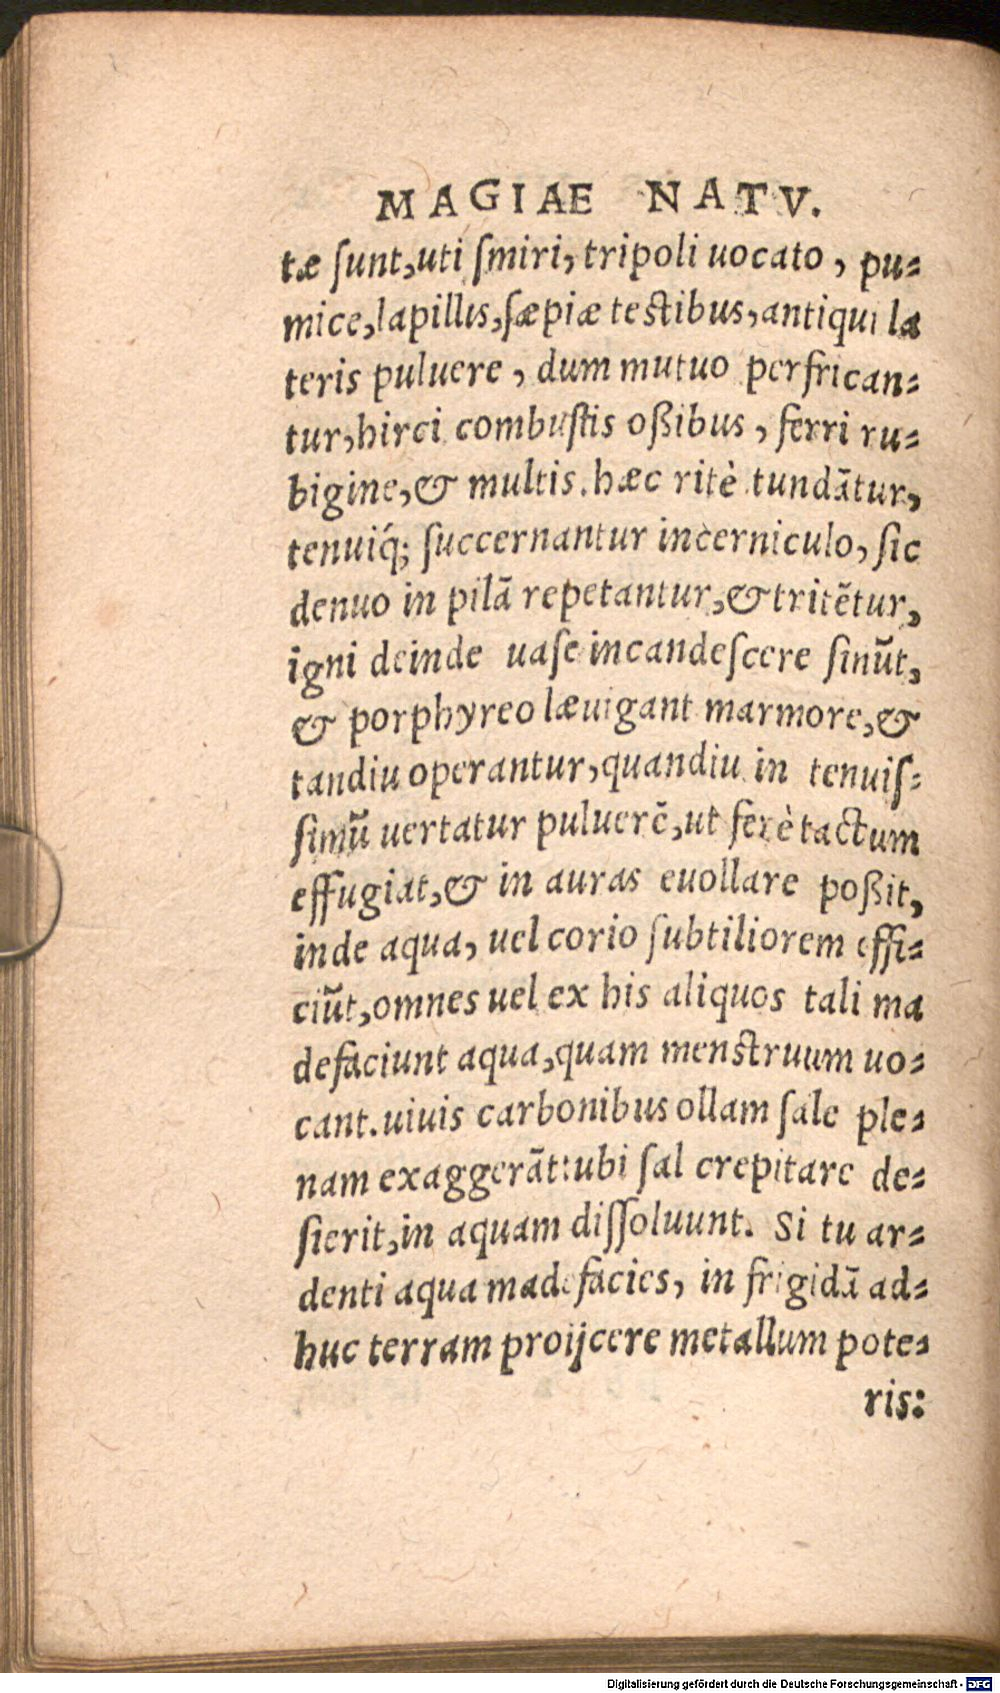 MAGIAE NATV.
tæ ſunt,uti ſmiri, tripoli uocato , pu⸗
mice,lapillis,ſæpiæ teſtibus,antiqui la
teris puluere , dum mutuo perfrican⸗
tur,hirci combuſtis oßibus , ferri ru⸗
bigine,& multis.hæc ritè tundātur,
tenuiq́; ſuccernantur incerniculo, ſic
denuo in pilā repetantur,& tritētur,
igni deinde uaſe incandeſcere ſinūt,
& porphyreo læuigant marmore,&
tandiu operantur,quandiu in tenuiſ⸗
ſimū uertatur puluerē,ut ferè tactum
effugiat,& in auras euollare poßit,
inde aqua, uel corio ſubtiliorem effi⸗
ciūt,omnes uel ex his aliquos tali ma
defaciunt aqua,quam menstruum uo⸗
cant.uiuis carbonibus ollam ſale ple⸗
nam exaggerāt:ubi ſal crepitare de⸗
ſierit,in aquam diſſoluunt. Si tu ar⸗
denti aqua madefacies, in frigidā ad⸗
huc terram proijcere metallum pote⸗
ris:
Digitalisierung gefördert durch die Deutsche Forschungsgemeinschaft - DFG